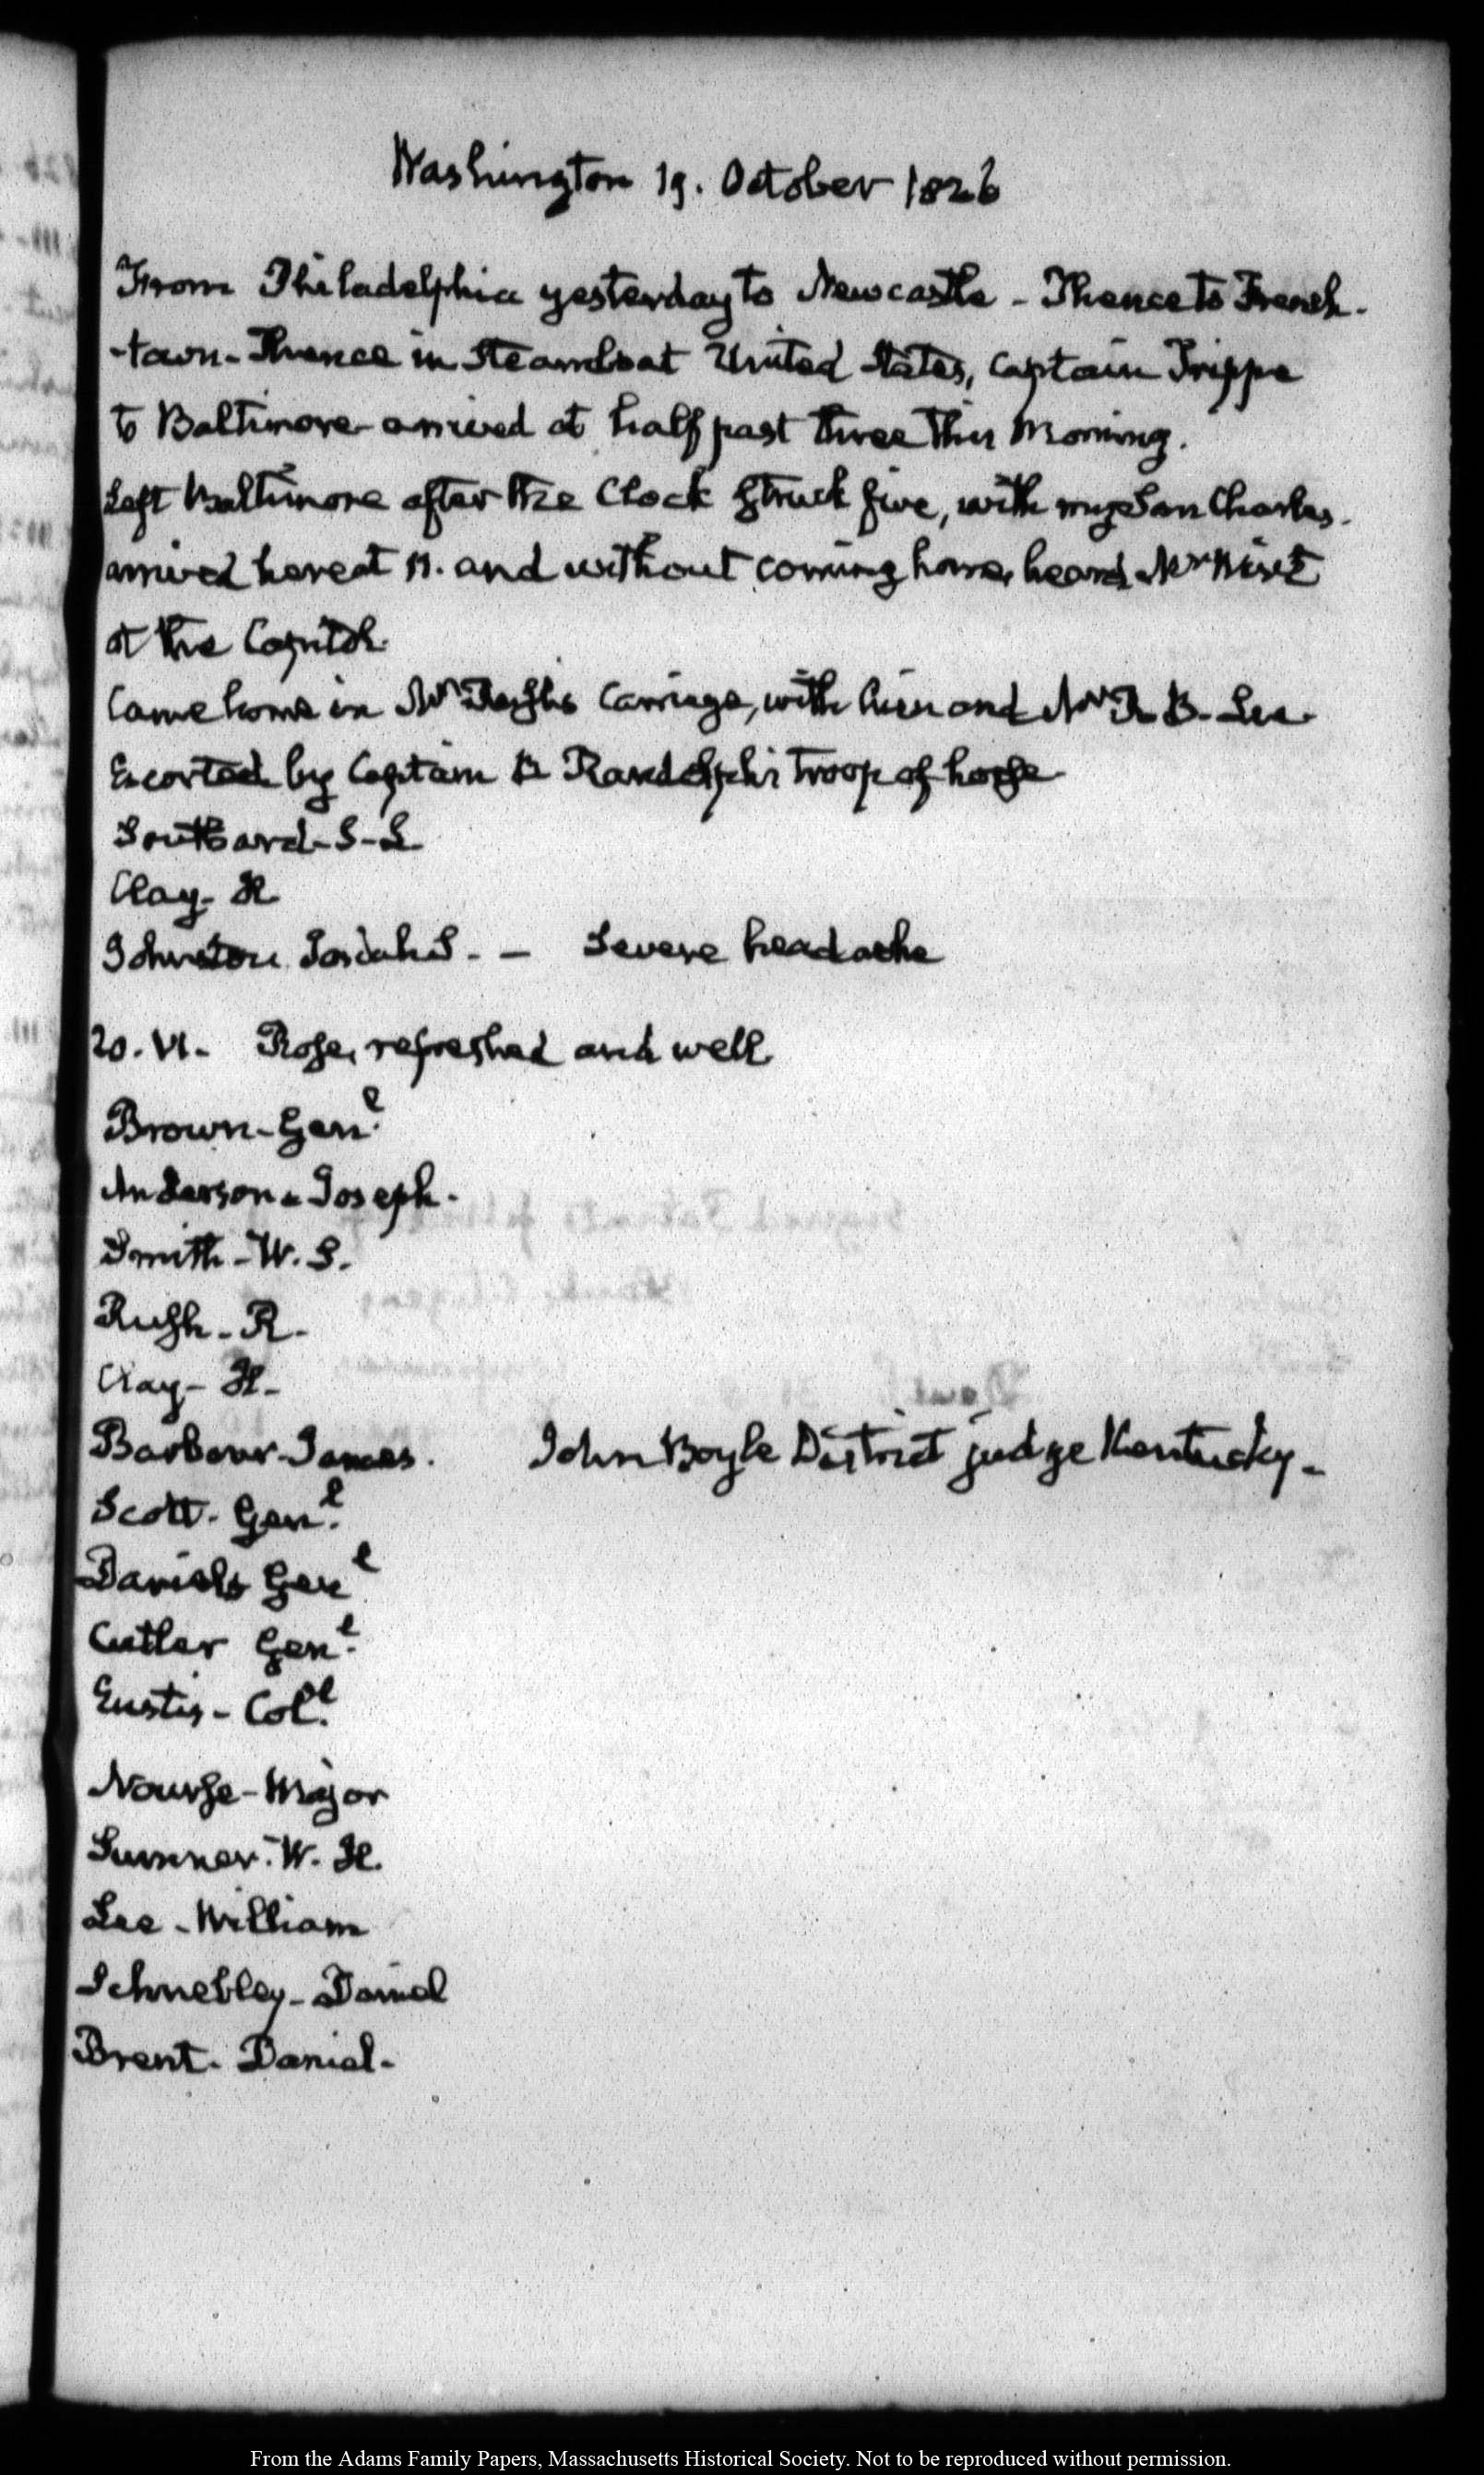 Washington 19. October 1826
From Philadelphia yesterday to Newcastle - Thence to French-
-town - Thence in Steamboat United States, Captain Trippe
to Baltimore arrived at half past three this Morning.
Left Baltimore after the Clock struck five, with my Son Charles.
arrived here at 11. and without coming home, heard Mr Wirt
at the Capitol.
Came home in Mr Rush's Carriage, with him and Mr R. B. Lee.
Escorted by Captain B Randolph's troop of horse
Southard - S - L
Clay - H
Johnston Josiah S. - Severe headache
20. VI. Rose, refreshed and well
Brown - Genl.
Anderson - Joseph.
Smith - W. S.
Rush - R.
Clay - H.
Barbour - James. John Boyle District judge Kentucky.
Scott - Genl.
Daniels Genl
Cutler Genl.
Eustis - Coll.
Nourse - Major
Sumner. W. H.
Lee - William
Schnebley - Daniel
Brent - Daniel.
From the Adams Family Papers, Massachusetts Historical Society. Not to be reproduced without permission.